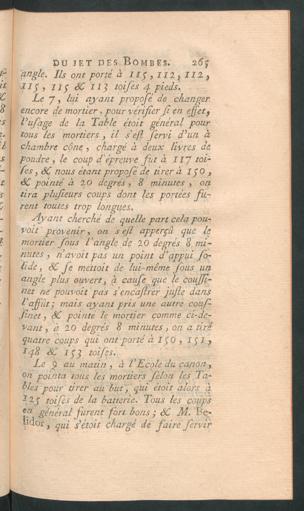 DU JET DES BOMBES. 265
angle. Ils ont porté à 115, 112, 112,
115, 115 & 113 toises 4 pieds.
Le 7, lui ayant proposé de changer
encore de mortier, pour vérifier si en effet,
l'usage de la Table étoit général pour
tous les mortiers, il s'est servi d'un à
chambre cône, chargé à deux livres de
poudre, le coup d'épreuve fut à 117 toi-
ses, & nous étant proposé de tirer à 150,
& pointé à 20 degrés, 8 minutes, on
tira plusieurs coups dont les portées fu-
rent toutes trop longues.
Ayant cherché de quelle part cela pou-
voit provenir, on s'est apperçû que le
mortier sous l'angle de 20 degrés 8 mi-
nutes, n'avoit pas un point d'appui so-
lide, & se mettoit de lui-même sous un
angle plus ouvert, à cause que le coussi-
net ne pouvoit pas s'encastrer juste dans
l'affût; mais ayant pris une autre cous-
sinet, & pointé le mortier comme ci-de-
vant, à 20 degrés 8 minutes, on a tiré
quatre coups qui ont porté à 150, 151,
148 & 153 toises.
Le 9 au matin, à l'Ecole du canon,
on pointa tous les mortiers selon les Ta-
bles pour tirer au but, qui étoit alors à
125 toises de la batterie. Tous les coups
en général furent fort bons; & M. Be-
lidor, qui s'étois chargé de faire servir